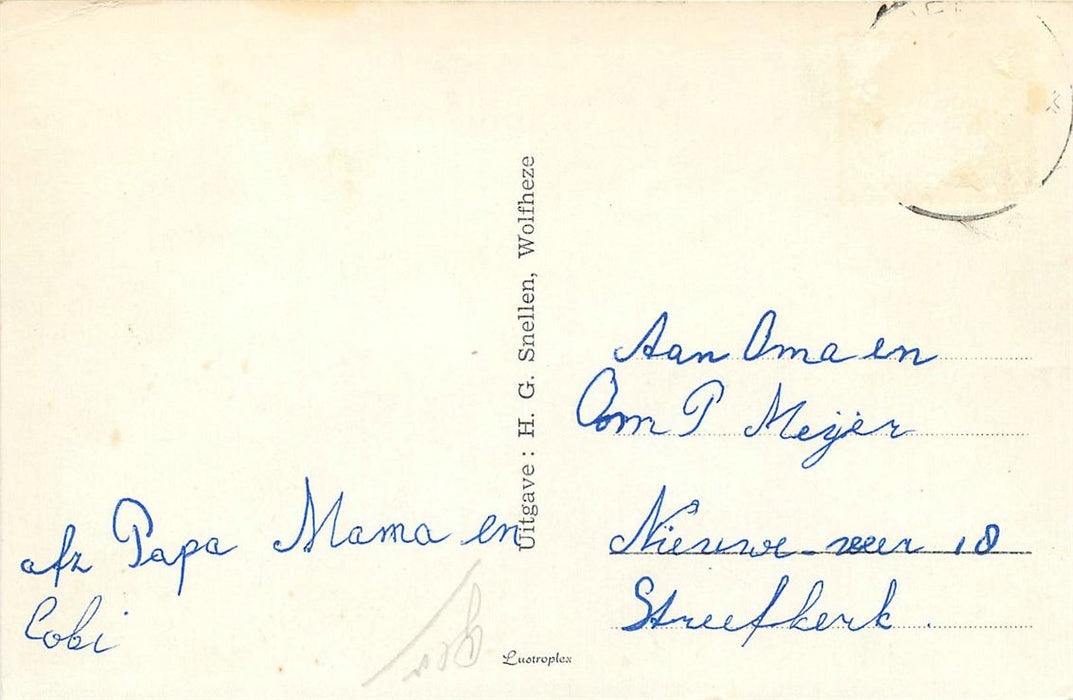 afz Papa Mama en
Cobi
Uitgave: H. G. Snellen, Wolfheze
Lustroplex
Aan Oma en
Oom P Meijer
Nieuwe-veer 18
Streefkerk.